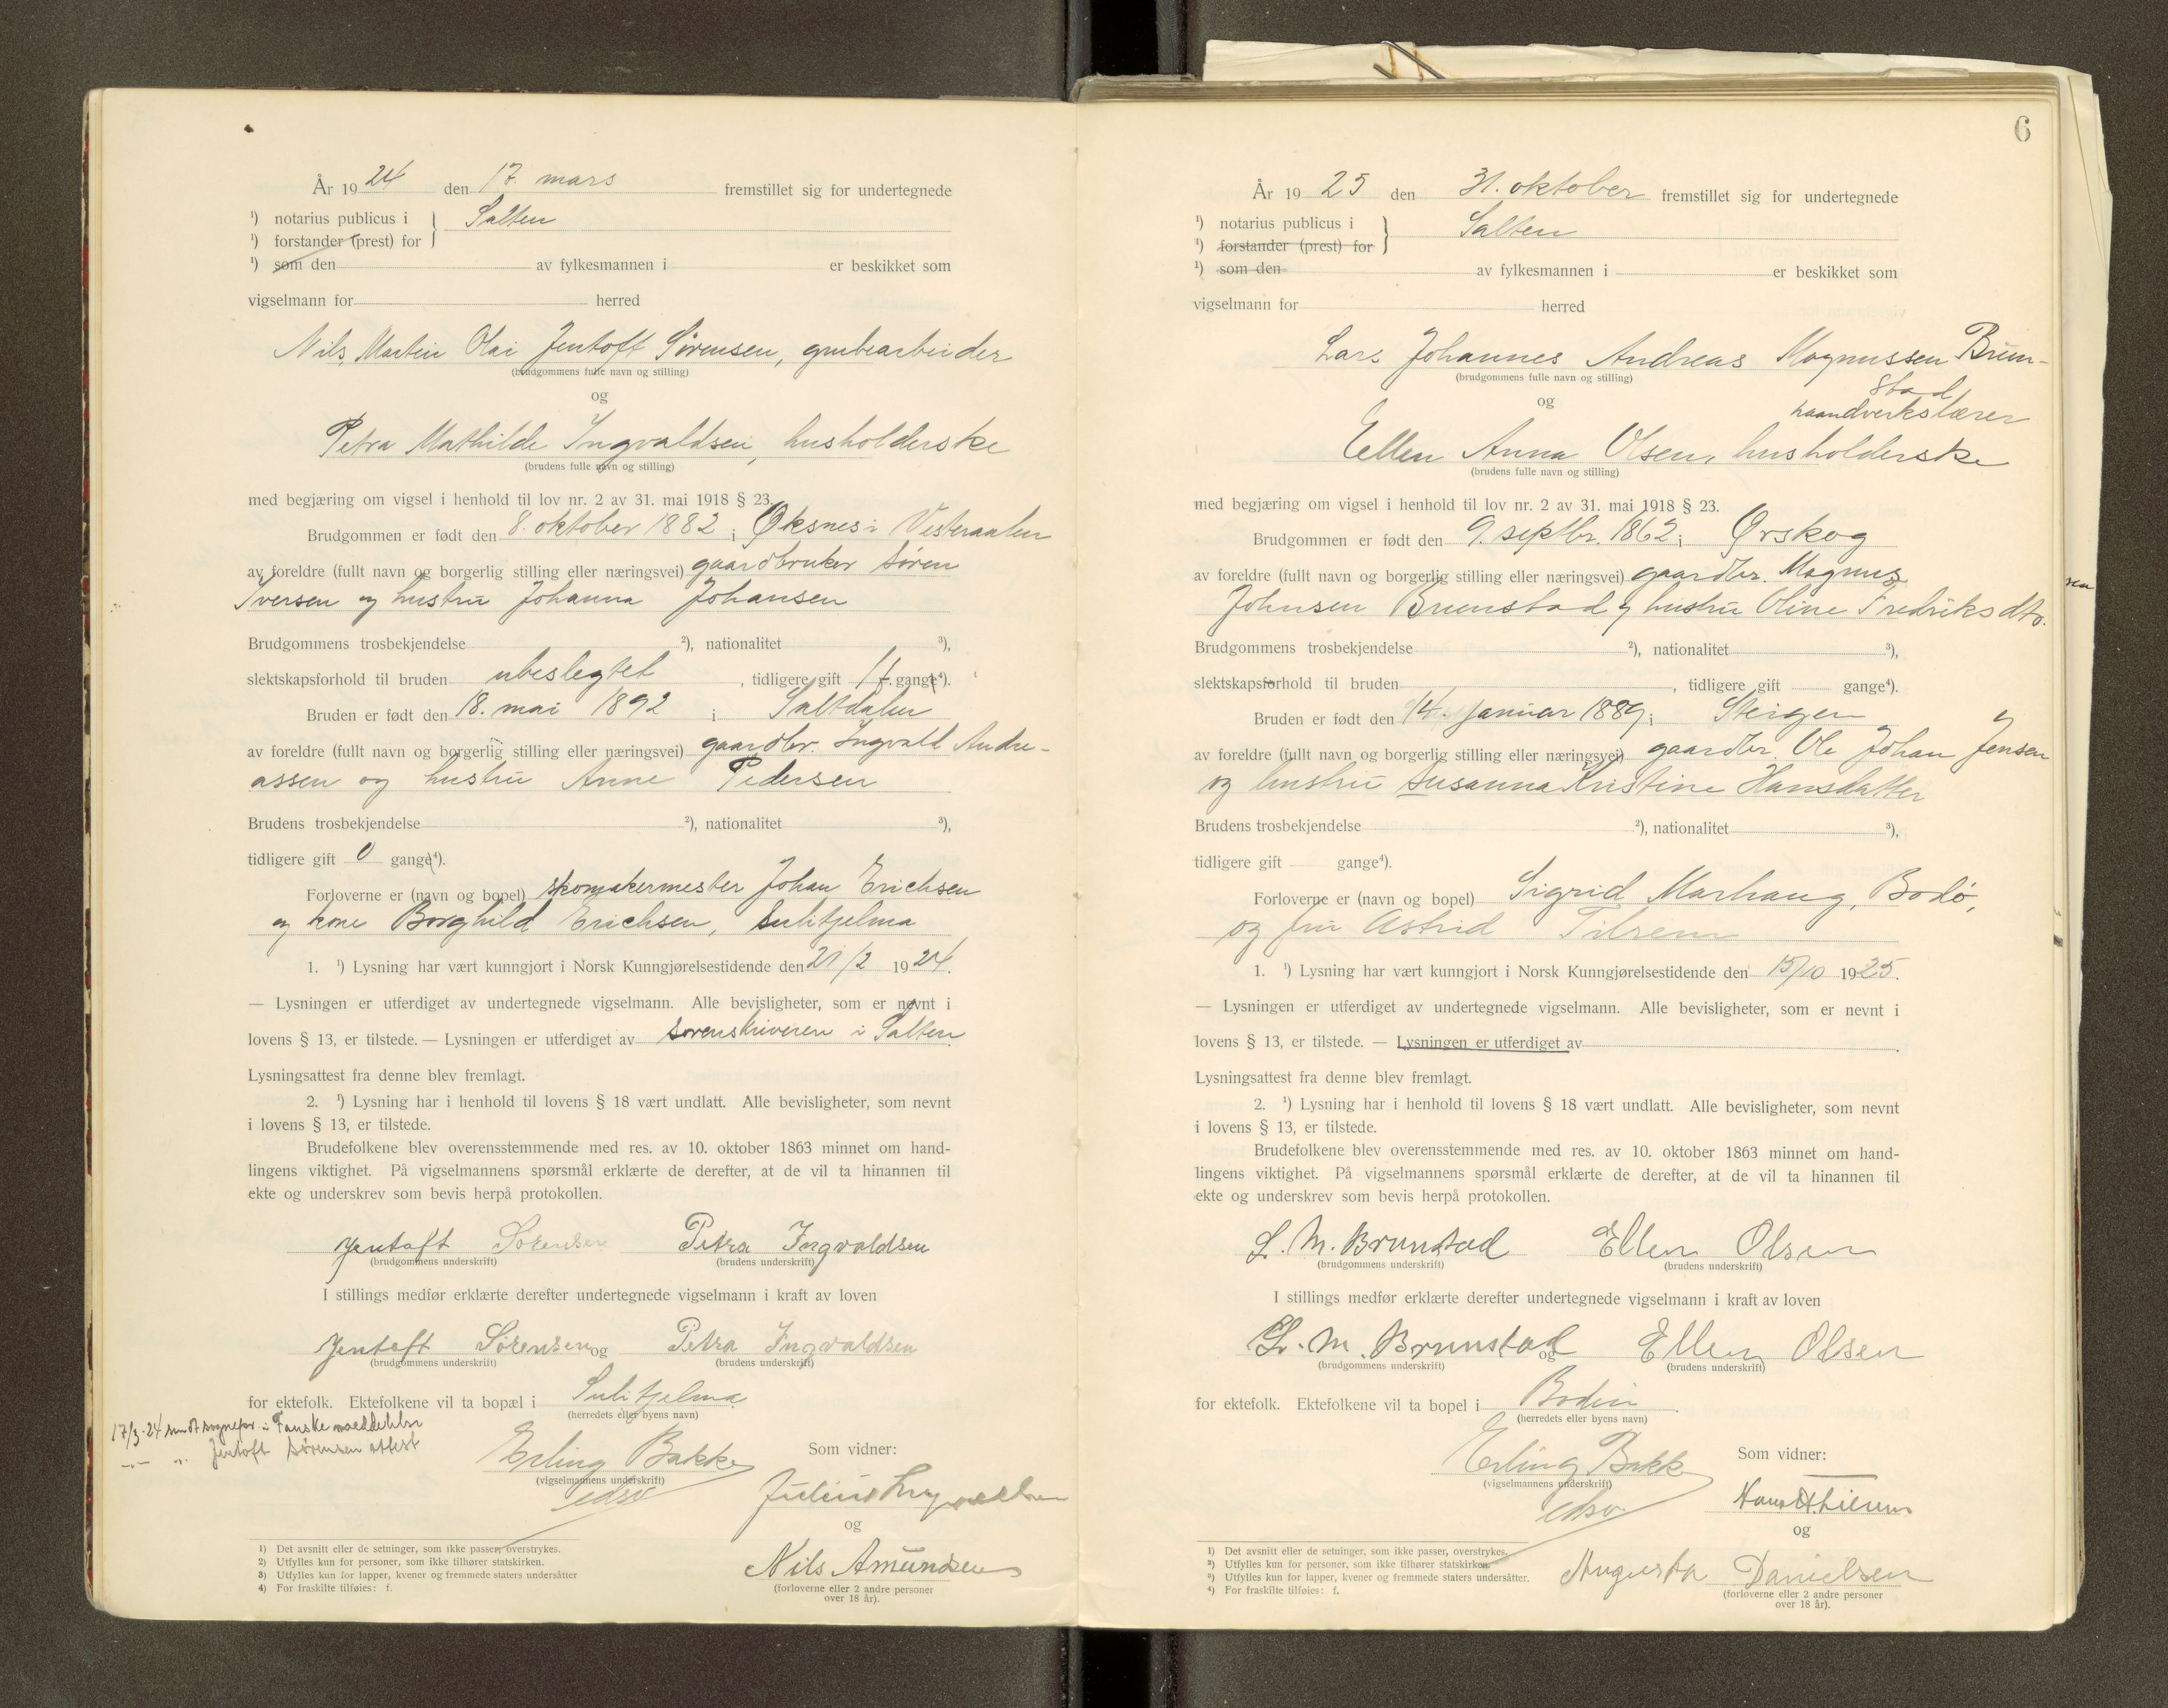 År 1924 den 17. mars fremstillet sig for undertegnede
¹) notarius publicus i } Salten
¹) forstander (prest) for
¹) som den av fylkesmannen i er beskikket som
vigselmann for herred
Nils Martin Olai Jentoft Sørensen, grubearbeider
(brudgommens fulle navn og stilling)
og
Petra Mathilde Ingvaldsen, husholderske
(brudens fulle navn og stilling)
med begjæring om vigsel i henhold til lov nr. 2 av 31. mai 1918 § 23.
Brudgommen er født den 8. oktober 1882 i Øksnes i Vesteraalen
av foreldre (fullt navn og borgerlig stilling eller næringsvei) gaardbruker Søren
Iversen og hustru Johanna Johansen
Brudgommens trosbekjendelse ²), nationalitet ³),
slektskapsforhold til bruden ubeslegtet, tidligere gift 1 f. gange⁴).
Bruden er født den 18. mai 1892 i Saltdalen
av foreldre (fullt navn og borgerlig stilling eller næringsvei) gaardbr. Ingvald Andre-
assen og hustru Anne Pedersen
Brudens trosbekjendelse ²), nationalitet ³),
tidligere gift 0 gange⁴).
Forloverne er (navn og bopel) skomakermester Johan Erichsen
og kone Borghild Erichsen, Sulitjelma
1. ¹) Lysning har vært kunngjort i Norsk Kunngjørelsestidende den 21/2 1924.
— Lysningen er utferdiget av undertegnede vigselmann. Alle bevisligheter, som er nevnt i
lovens § 13, er tilstede. — Lysningen er utferdiget av sorenskriveren i Salten
Lysningsattest fra denne blev fremlagt.
2. ¹) Lysning har i henhold til lovens § 18 vært undlatt. Alle bevisligheter, som nevnt
i lovens § 13, er tilstede.
Brudefolkene blev overensstemmende med res. av 10. oktober 1863 minnet om hand-
lingens viktighet. På vigselmannens spørsmål erklærte de derefter, at de vil ta hinannen til
ekte og underskrev som bevis herpå protokollen.
Jentoft Sørensen Petra Ingvaldsen
(brudgommens underskrift) (brudens underskrift)
I stillings medfør erklærte derefter undertegnede vigselmann i kraft av loven
Jentoft Sørensen og Petra Ingvaldsen
(brudgommens underskrift) (brudens underskrift)
for ektefolk. Ektefolkene vil ta bopæl i Sulitjelma
(herredets eller byens navn)
17/3-24 sendt sognepr. i Fauske meddelelse
Jentoft Sørensen attest
Erling Bakke Som vidner:
(vigselmannens underskrift)
edsv
Julius Ingvaldsen
og
Nils Amundsen
(forloverne eller 2 andre personer
over 18 år).
1) Det avsnitt eller de setninger, som ikke passer, overstrykes.
2) Utfylles kun for personer, som ikke tilhører statskirken.
3) Utfylles kun for lapper, kvener og fremmede staters undersåtter
4) For fraskilte tilføies: f.
6
År 1925 den 31. oktober fremstillet sig for undertegnede
¹) notarius publicus i } Salten
¹) forstander (prest) for
¹) som den av fylkesmannen i er beskikket som
vigselmann for herred
Lars Johannes Andreas Magnussen Brun-
stad
(brudgommens fulle navn og stilling)
og haandverkslærer
Ellen Anna Olsen, husholderske
(brudens fulle navn og stilling)
med begjæring om vigsel i henhold til lov nr. 2 av 31. mai 1918 § 23.
Brudgommen er født den 9. septbr. 1862 i Ørskog
av foreldre (fullt navn og borgerlig stilling eller næringsvei) gaardbr. Magnus
Johnsen Brunstad og hustru Oline Fredriksdtr.
Brudgommens trosbekjendelse ²), nationalitet ³),
slektskapsforhold til bruden , tidligere gift gange⁴).
Bruden er født den 14. januar 1889 i Steigen
av foreldre (fullt navn og borgerlig stilling eller næringsvei) gaardbr. Ole Johan Jensen
og hustru Susanna Kristine Hansdatter
Brudens trosbekjendelse ²), nationalitet ³),
tidligere gift gange⁴).
Forloverne er (navn og bopel) Sigrid Marhaug, Bodø,
og fru Astrid
1. ¹) Lysning har vært kunngjort i Norsk Kunngjørelsestidende den 15/10 1925.
— Lysningen er utferdiget av undertegnede vigselmann. Alle bevisligheter, som er nevnt i
lovens § 13, er tilstede. — Lysningen er utferdiget av .
Lysningsattest fra denne blev fremlagt.
2. ¹) Lysning har i henhold til lovens § 18 vært undlatt. Alle bevisligheter, som nevnt
i lovens § 13, er tilstede.
Brudefolkene blev overensstemmende med res. av 10. oktober 1863 minnet om hand-
lingens viktighet. På vigselmannens spørsmål erklærte de derefter, at de vil ta hinannen til
ekte og underskrev som bevis herpå protokollen.
L. M. Brunstad Ellen Olsen
(brudgommens underskrift) (brudens underskrift)
I stillings medfør erklærte derefter undertegnede vigselmann i kraft av loven
L. M. Brunstad og Ellen Olsen
(brudgommens underskrift) (brudens underskrift)
for ektefolk. Ektefolkene vil ta bopel i Bodin.
(herredets eller byens navn)
Erling Bakke Som vidner:
(vigselmannens underskrift)
edsv
og
Augusta Danielsen
(forloverne eller 2 andre personer
over 18 år).
¹) Det avsnitt eller de setninger, som ikke passer, overstrykes.
²) Utfylles kun for personer, som ikke tilhører statskirken.
³) Utfylles kun for lapper, kvener og fremmede staters undersåtter.
⁴) For fraskilte tilføies: f.